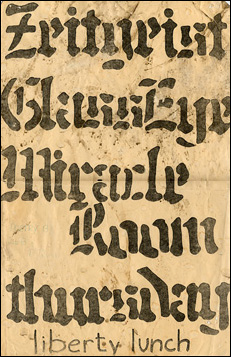 Zeitgeist
Glass Eye
Miracle
Room
thursday
liberty lunch